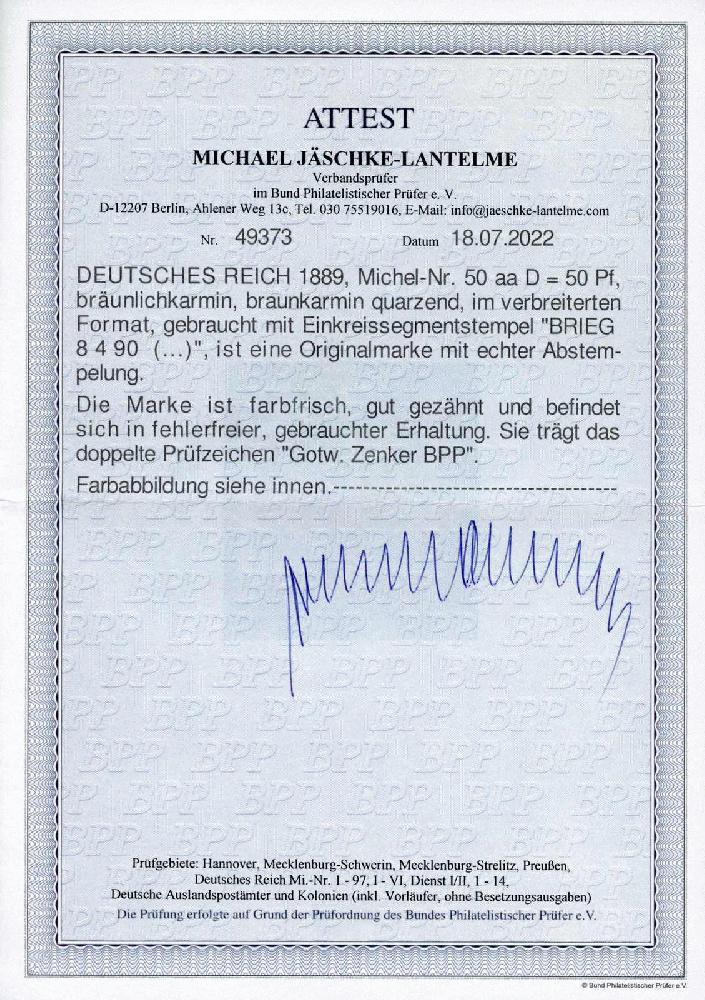 ATTEST
MICHAEL JÄSCHKE-LANTELME
Verbandsprüfer
im Bund Philatelistischer Prüfer e. V.
D-12207 Berlin, Ahlener Weg 13c, Tel. 030 75519016, E-Mail: info@jaeschke-lantelme.com
Nr. 49373 Datum 18.07.2022
DEUTSCHES REICH 1889, Michel-Nr. 50 aa D = 50 Pf,
bräunlichkarmin, braunkarmin quarzend, im verbreiterten
Format, gebraucht mit Einkreissegmentstempel "BRIEG
8 4 90 (...)", ist eine Originalmarke mit echter Abstem-
pelung.
Die Marke ist farbfrisch, gut gezähnt und befindet
sich in fehlerfreier, gebrauchter Erhaltung. Sie trägt das
doppelte Prüfzeichen "Gotw. Zenker BPP".
Farbabbildung siehe innen.--------------------------------------
Prüfgebiete: Hannover, Mecklenburg-Schwerin, Mecklenburg-Strelitz, Preußen,
Deutsches Reich Mi.-Nr. 1 - 97, I - VI, Dienst I/II, 1 - 14,
Deutsche Auslandspostämter und Kolonien (inkl. Vorläufer, ohne Besetzungsausgaben)
Die Prüfung erfolgte auf Grund der Prüfordnung des Bundes Philatelistischer Prüfer e.V.
© Bund Philatelistischer Prüfer e.V.